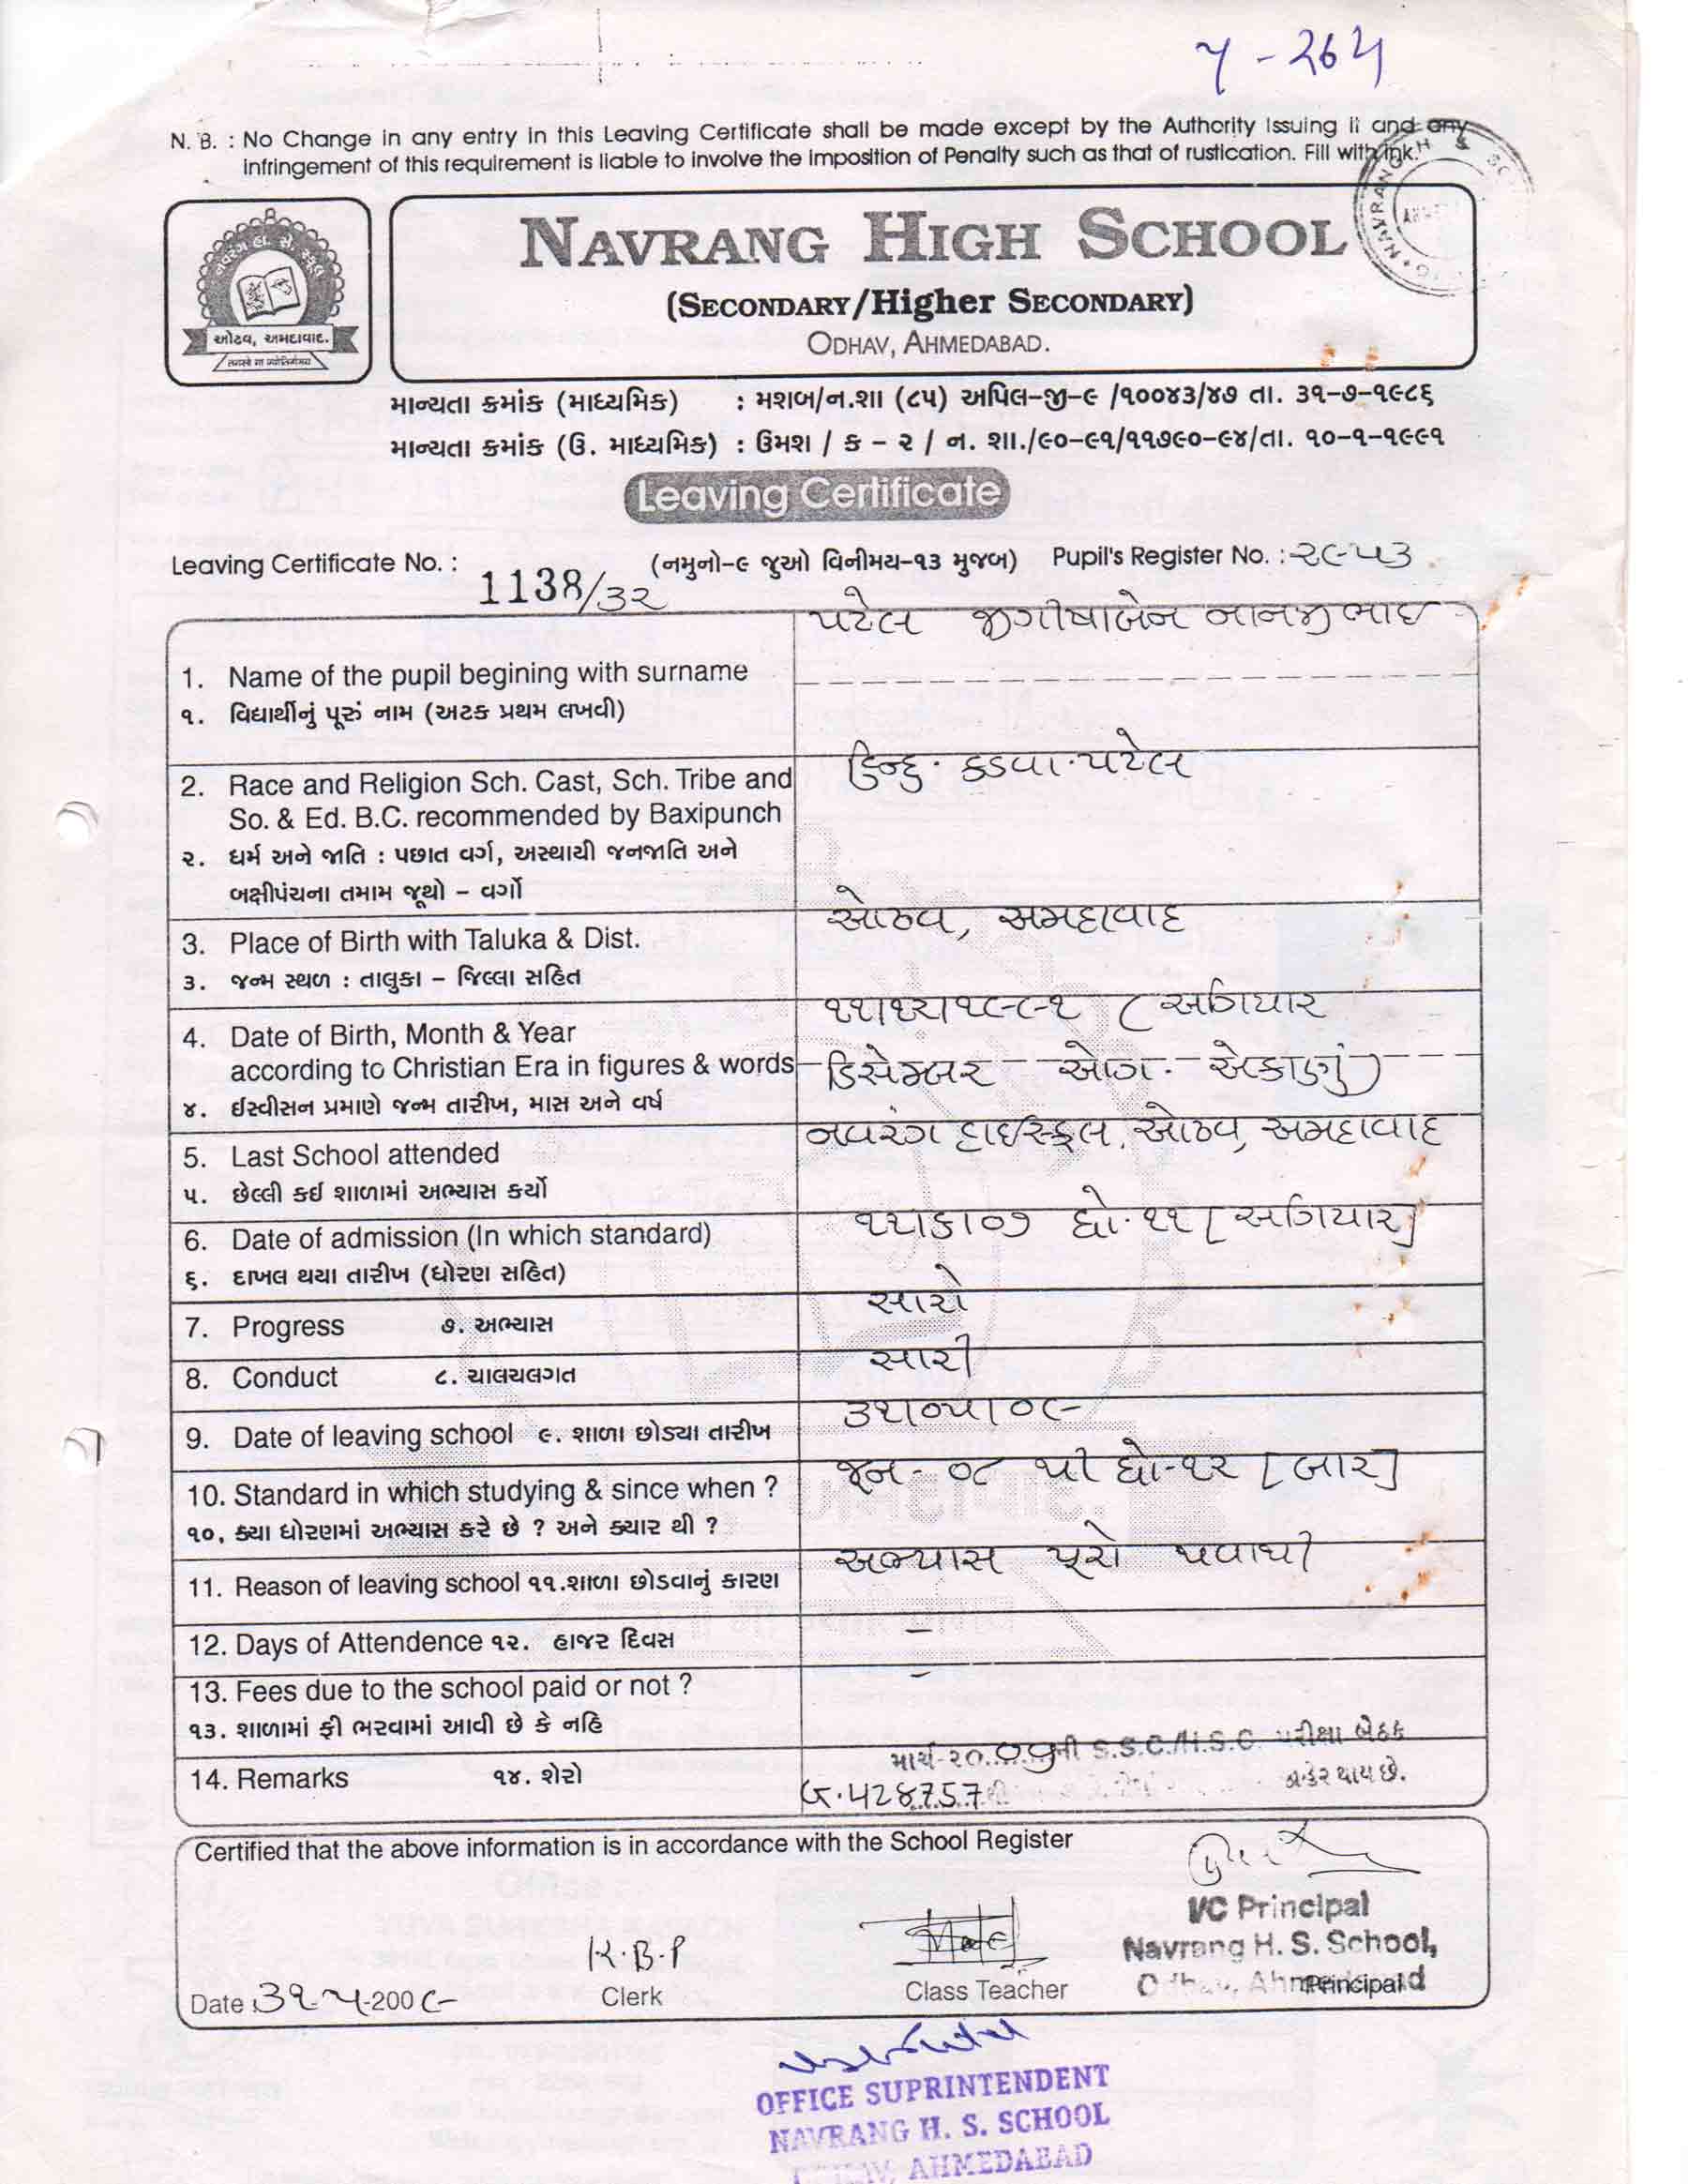 ૫ - ૨૬૫
N. B. : No Change in any entry in this Leaving Certificate shall be made except by the Authority Issuing it and any
infringement of this requirement is liable to involve the imposition of Penalty such as that of rustication. Fill with ink.
NAVRANG HIGH SCHOOL
(SECONDARY/Higher SECONDARY)
ODHAV, AHMEDABAD.
નવરંગ હા. સે. સ્કૂલ
ઓઢવ, અમદાવાદ.
માન્યતા ક્રમાંક (માધ્યમિક) : મશબ/ન.શા (૮૫) અપિલ-જી-૯ /૧૦૦૪૩/૪૭ તા. ૩૧-૭-૧૯૮૬
માન્યતા ક્રમાંક (ઉ. માધ્યમિક) : ઉમશ / ક - ૨ / ન. શા./૯૦-૯૧/૧૧૭૯૦-૯૪/તા. ૧૦-૧-૧૯૯૧
Leaving Certificate
Leaving Certificate No. : 1138/૩૨ (નમુનો-૯ જુઓ વિનીમય-૧૩ મુજબ) Pupil's Register No. : ૨૯૫૩
1. Name of the pupil begining with surname
૧. વિદ્યાર્થીનું પૂરું નામ (અટક પ્રથમ લખવી)
પટેલ જીગીષાબેન નાનજીભાઇ
2. Race and Religion Sch. Cast, Sch. Tribe and
So. & Ed. B.C. recommended by Baxipunch
૨. ધર્મ અને જાતિ : પછાત વર્ગ, અસ્થાયી જનજાતિ અને
બક્ષીપંચના તમામ જૂથો - વર્ગો
હિન્દુ. કડવા.પટેલ
3. Place of Birth with Taluka & Dist.
૩. જન્મ સ્થળ : તાલુકા - જિલ્લા સહિત
ઓઢવ, અમદાવાદ
4. Date of Birth, Month & Year
according to Christian Era in figures & words
૪. ઈસ્વીસન પ્રમાણે જન્મ તારીખ, માસ અને વર્ષ
૧૧।૧૨।૧૯૯૧ (અગિયાર
ડિસેમ્બર ઓગ. એકાણું)
5. Last School attended
૫. છેલ્લી કઈ શાળામાં અભ્યાસ કર્યો
નવરંગ હાઇસ્કૂલ, ઓઢવ, અમદાવાદ
6. Date of admission (In which standard)
૬. દાખલ થયા તારીખ (ધોરણ સહિત)
૧૧।૬।૦૭ ધો.૧૧ [અગિયાર]
7. Progress ૭. અભ્યાસ
સારો
8. Conduct ૮. ચાલચલગત
સારી
9. Date of leaving school ૯. શાળા છોડ્યા તારીખ
૩૧।૦૫।૦૯
10. Standard in which studying & since when ?
૧૦. ક્યા ધોરણમાં અભ્યાસ કરે છે ? અને ક્યાર થી ?
જૂન - ૦૮ થી ધો-૧૨ [બાર]
11. Reason of leaving school ૧૧.શાળા છોડવાનું કારણ
અભ્યાસ પૂરો થવાથી
12. Days of Attendence ૧૨. હાજર દિવસ
–
13. Fees due to the school paid or not ?
૧૩. શાળામાં ફી ભરવામાં આવી છે કે નહિ
–
14. Remarks ૧૪. શેરો
માર્ચ-૨૦..૦૯ની S.S.C./H.S.C. પરીક્ષા બેઠક
જાહેર થાય છે.
Certified that the above information is in accordance with the School Register
I/C Principal
Navrang H. S. School,
Odhav, Ahmedabad
K.B.P
Date : ૩૧-૫-200૯ Clerk Class Teacher Principal
OFFICE SUPRINTENDENT
NAVRANG H. S. SCHOOL
ODHAV, AHMEDABAD